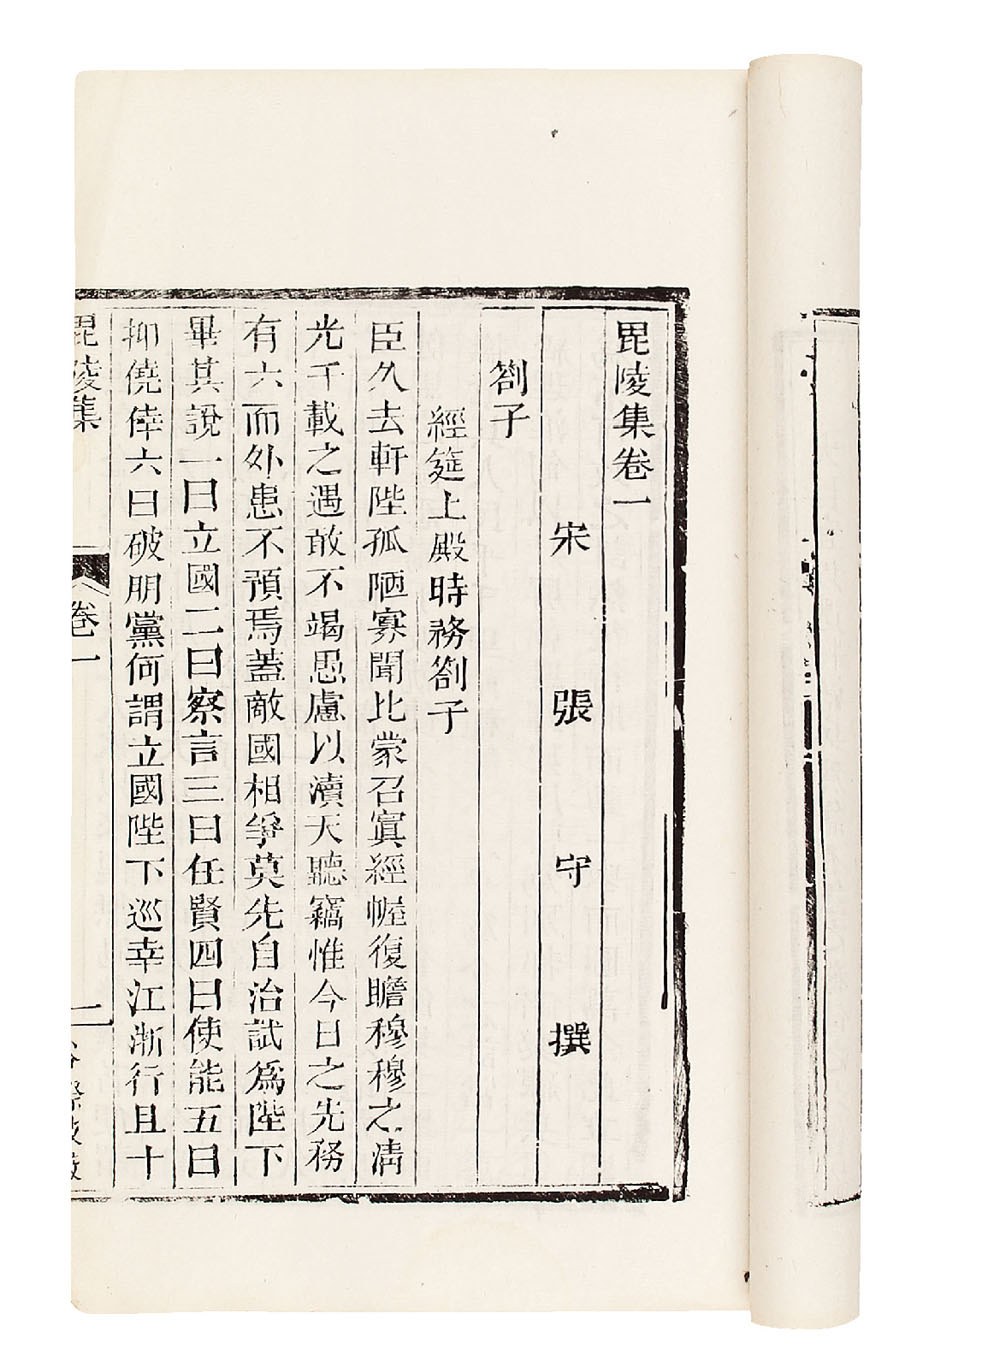 毘陵集卷一
宋張守撰
劄子
經筵上殿時務劄子
臣久去軒陛孤陋寡聞比蒙召寘經幄復瞻穆穆之淸
光千載之遇敢不竭愚慮以瀆天聽竊惟今日之先務
有六而外患不預焉蓋敵國相爭莫先自治試爲陛下
畢其說一曰立國二曰察言三曰任賢四曰使能五曰
抑僥倖六曰破朋黨何謂立國陛下巡幸江浙行且十
毘陵集
卷一
一